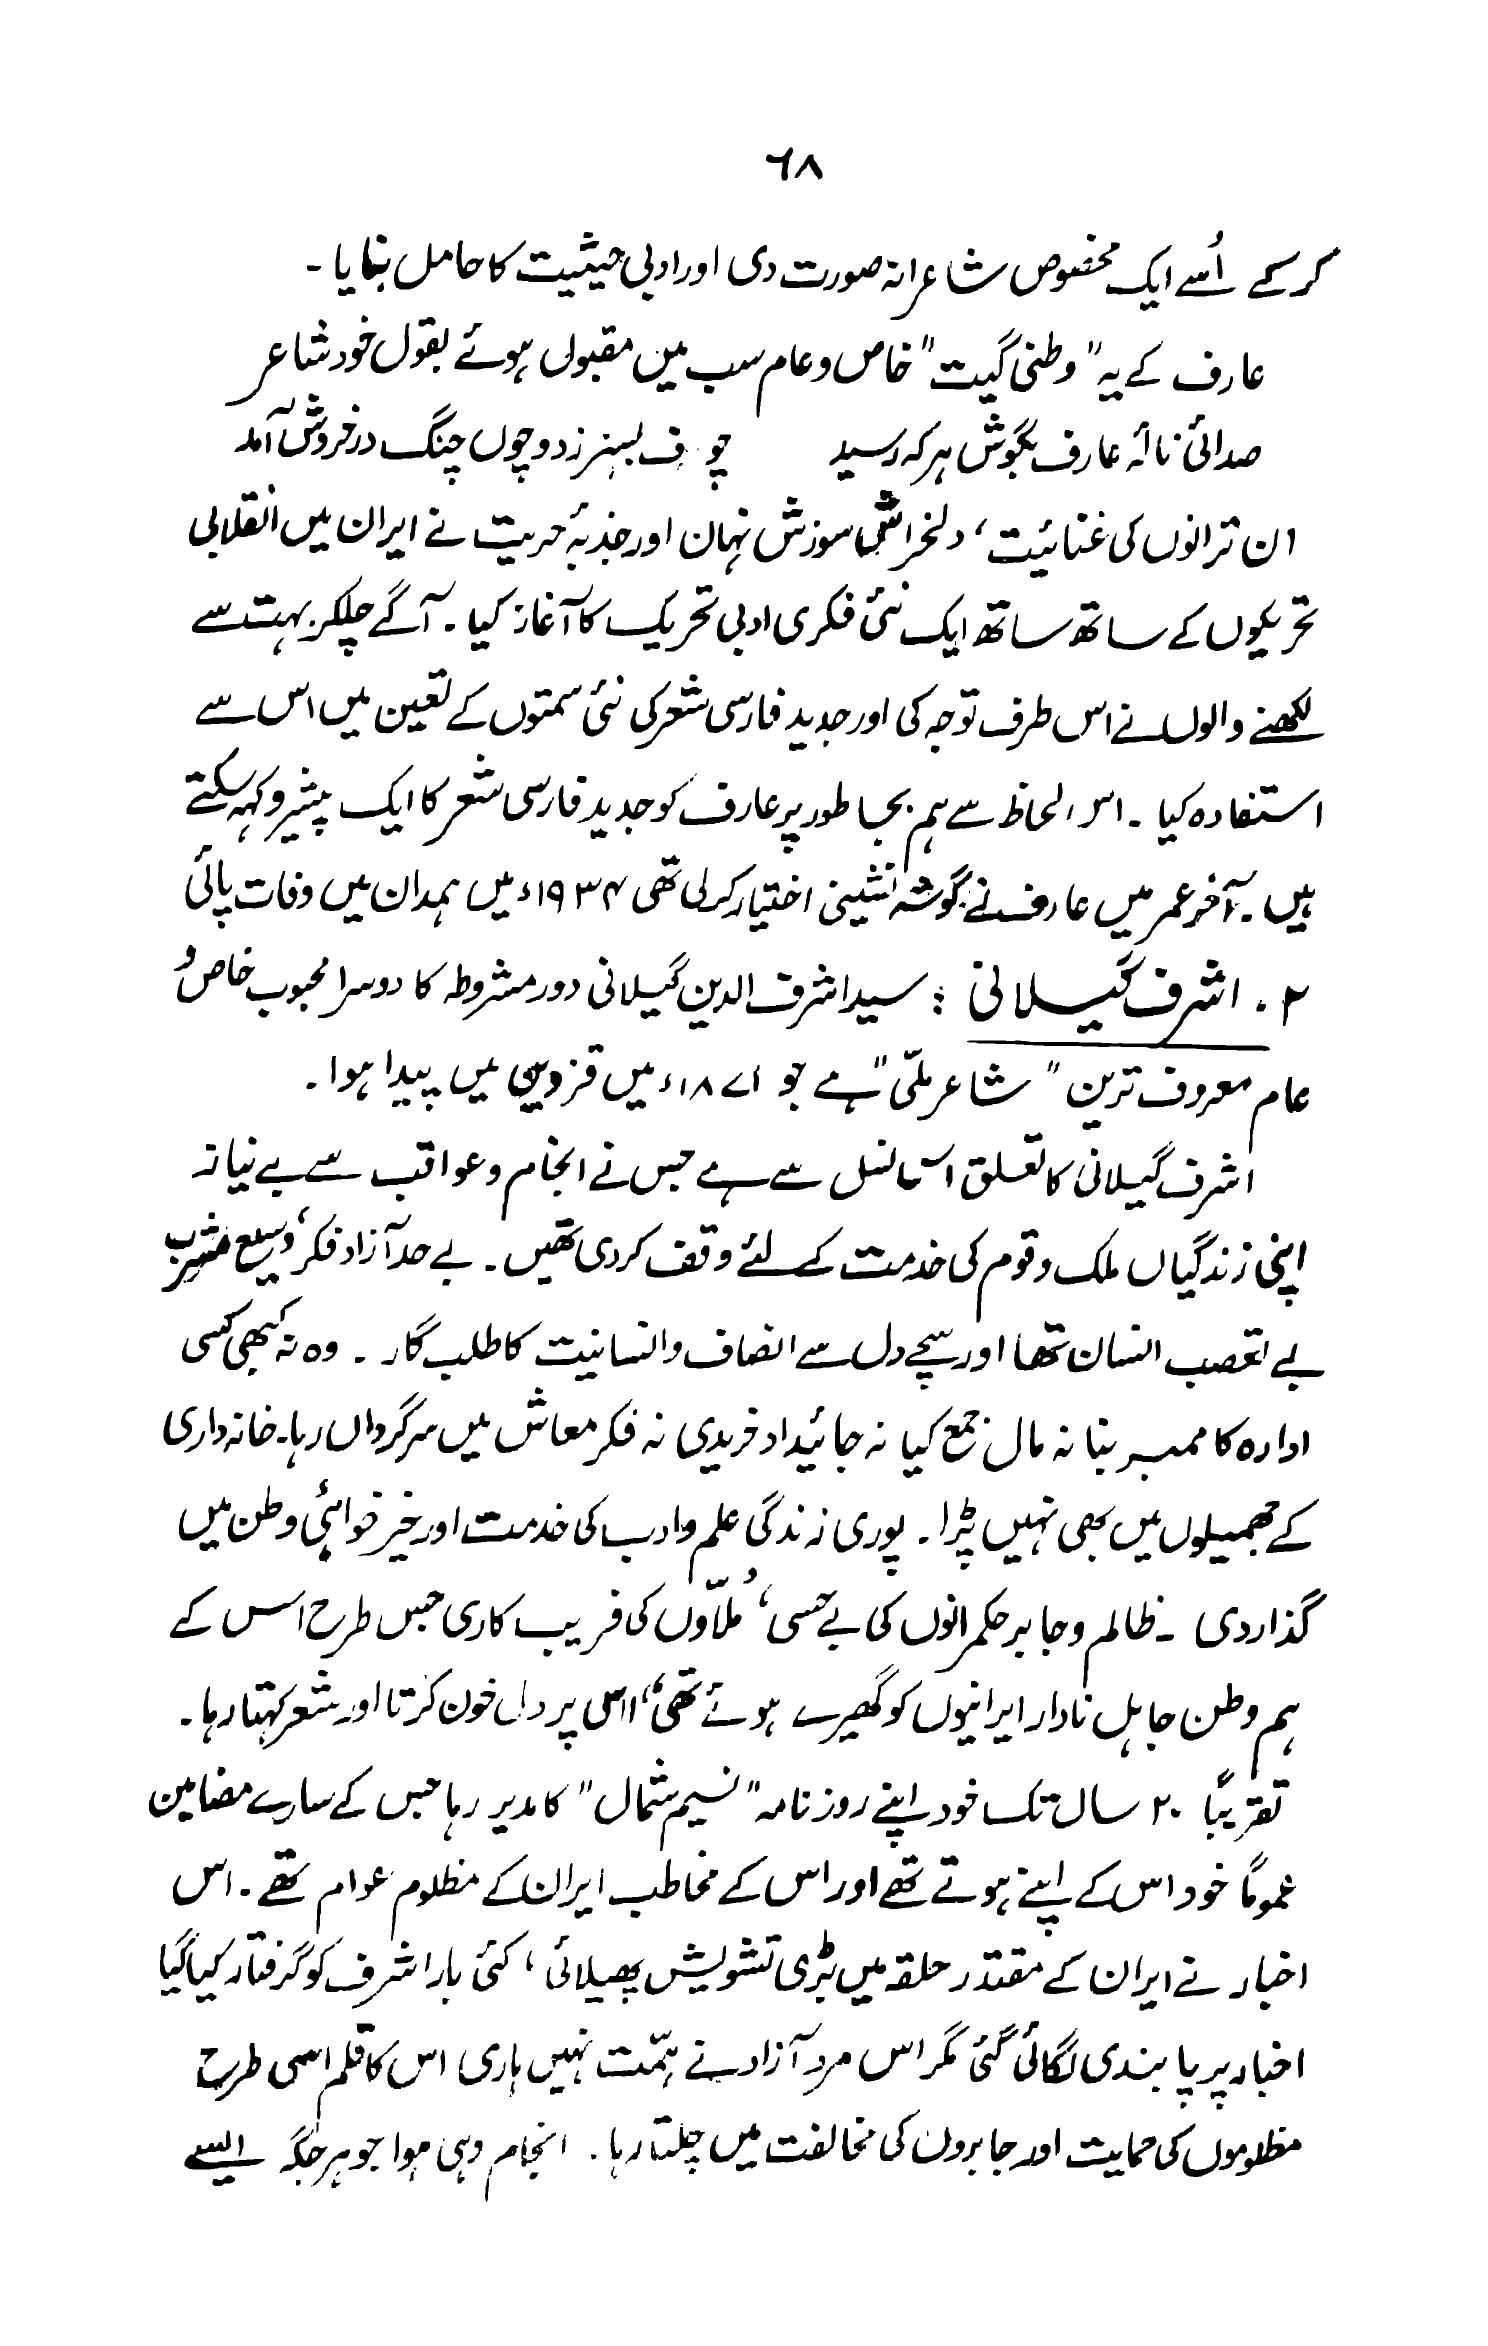 ٦٨
کر کے اُسے ایک مخصوص شاعرانہ صورت دی اور ادبی حیثیت کا حامل بنایا ۔
عارف کے یہ " وطنی گیت " خاص و عام سب میں مقبول ہوئے بقول خود شاعر
صدائی نالۂ عارف بگوش ہر کہ رسید چو ف بسر زد و چوں چنگ در خروش آمد
ان ترانوں کی غنائیت ، دلخراشی سوزش نہان اور جذبۂ حریت نے ایران میں انقلابی
تحریکوں کے ساتھ ساتھ ایک نئی فکری ادبی تحریک کا آغاز کیا ۔ آگے چلکر بہت سے
لکھنے والوں نے اس طرف توجہ کی اور جدید فارسی شعر کی نئی سمتوں کے تعین میں اس سے
استفادہ کیا ۔ اس لحاظ سے ہم بجا طور پر عارف کو جدید فارسی شعر کا ایک پیشرو کہہ سکتے
ہیں ۔ آخر عمر میں عارف نے گوشہ نشینی اختیار کر لی تھی ۱۹۳۴ء میں ہمدان میں وفات پائی
۲ ۔ اشرف گیلانی : سید اشرف الدین گیلانی دور مشروطہ کا دوسرا محبوب خاص و
عام معروف ترین " شاعر ملّی " ہے جو ۱۸۷۱ء میں قزوین میں پیدا ہوا ۔
اشرف گیلانی کا تعلق اس نسل سے ہے جس نے انجام و عواقب سے بے نیاز
اپنی زندگیاں ملک و قوم کی خدمت کے لئے وقف کر دی تھیں ۔ بے حد آزاد فکر ، وسیع مشرب
بے تعصب انسان تھا اور سچے دل سے انصاف و انسانیت کا طلب گار ۔ وہ نہ کبھی کسی
ادارہ کا ممبر بنا نہ مال جمع کیا نہ جائیداد خریدی نہ فکر معاش میں سرگرداں رہا ۔ خانہ داری
کے جھمیلوں میں بھی نہیں پڑا ۔ پوری زندگی علم و ادب کی خدمت اور خیر خواہئی وطن میں
گذار دی ۔ ظالم و جابر حکمرانوں کی بے حسی ، مُلّاوں کی فریب کاری جس طرح اس کے
ہم وطن جاہل نادار ایرانیوں کو گھیرے ہوئے تھی ، اس پر دل خون کرتا اور شعر کہتا رہا ۔
تقریباً ۲۰ سال تک خود اپنے روز نامہ " نسیم شمال " کا مدیر رہا جس کے سارے مضامین
عموماً خود اس کے اپنے ہوتے تھے اور اس کے مخاطب ایران کے مظلوم عوام تھے ۔ اس
اخبار نے ایران کے مقتدر حلقہ میں بڑی تشویش پھیلائی ، کئی بار اشرف کو گرفتار کیا گیا
اخبار پر پابندی لگائی گئی مگر اس مرد آزاد نے ہمّت نہیں ہاری اس کا قلم اسی طرح
مظلوموں کی حمایت اور جابروں کی مخالفت میں چلتا رہا ۔ انجام وہی ہوا جو ہر جگہ ایسے